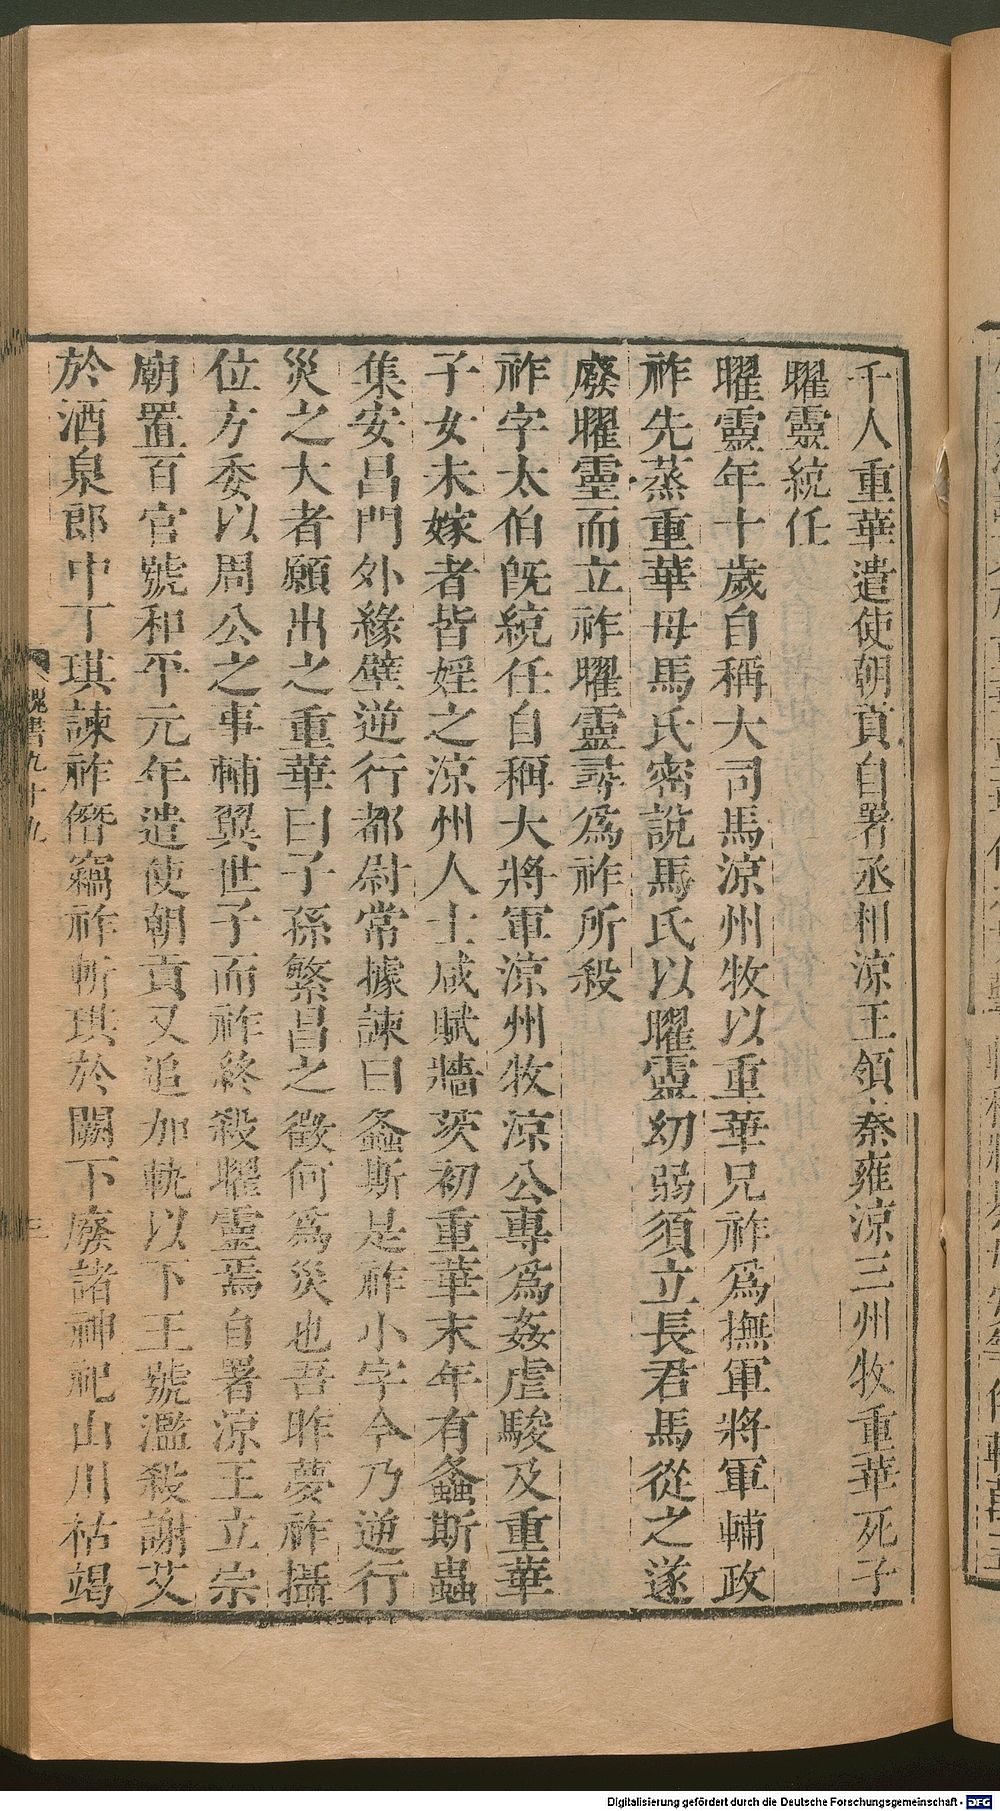 千人重華遣使朝貢自署丞相涼王領秦雍涼三州牧重華死子
曜靈統任
曜靈年十歲自稱大司馬涼州牧以重華兄祚爲撫軍將軍輔政
祚先蒸重華母馬氏密說馬氏以曜靈幼弱須立長君馬從之遂
廢曜靈而立祚曜靈尋爲祚所殺
祚字太伯旣統任自稱大將軍涼州牧涼公專爲姦虐駿及重華
子女未嫁者皆婬之涼州人士咸賦牆茨初重華末年有螽斯蟲
集安昌門外緣壁逆行都尉常據諫曰螽斯是祚小字今乃逆行
災之大者願出之重華曰子孫繁昌之徵何爲災也吾昨夢祚攝
位方委以周公之事輔翼世子而祚終殺曜靈焉自署涼王立宗
廟置百官號和平元年遣使朝貢又追加軌以下王號濫殺謝艾
於酒泉郎中丁琪諫祚僭竊祚斬琪於闕下廢諸神祀山川枯竭
魏書九十九
三
Digitalisierung gefördert durch die Deutsche Forschungsgemeinschaft - DFG